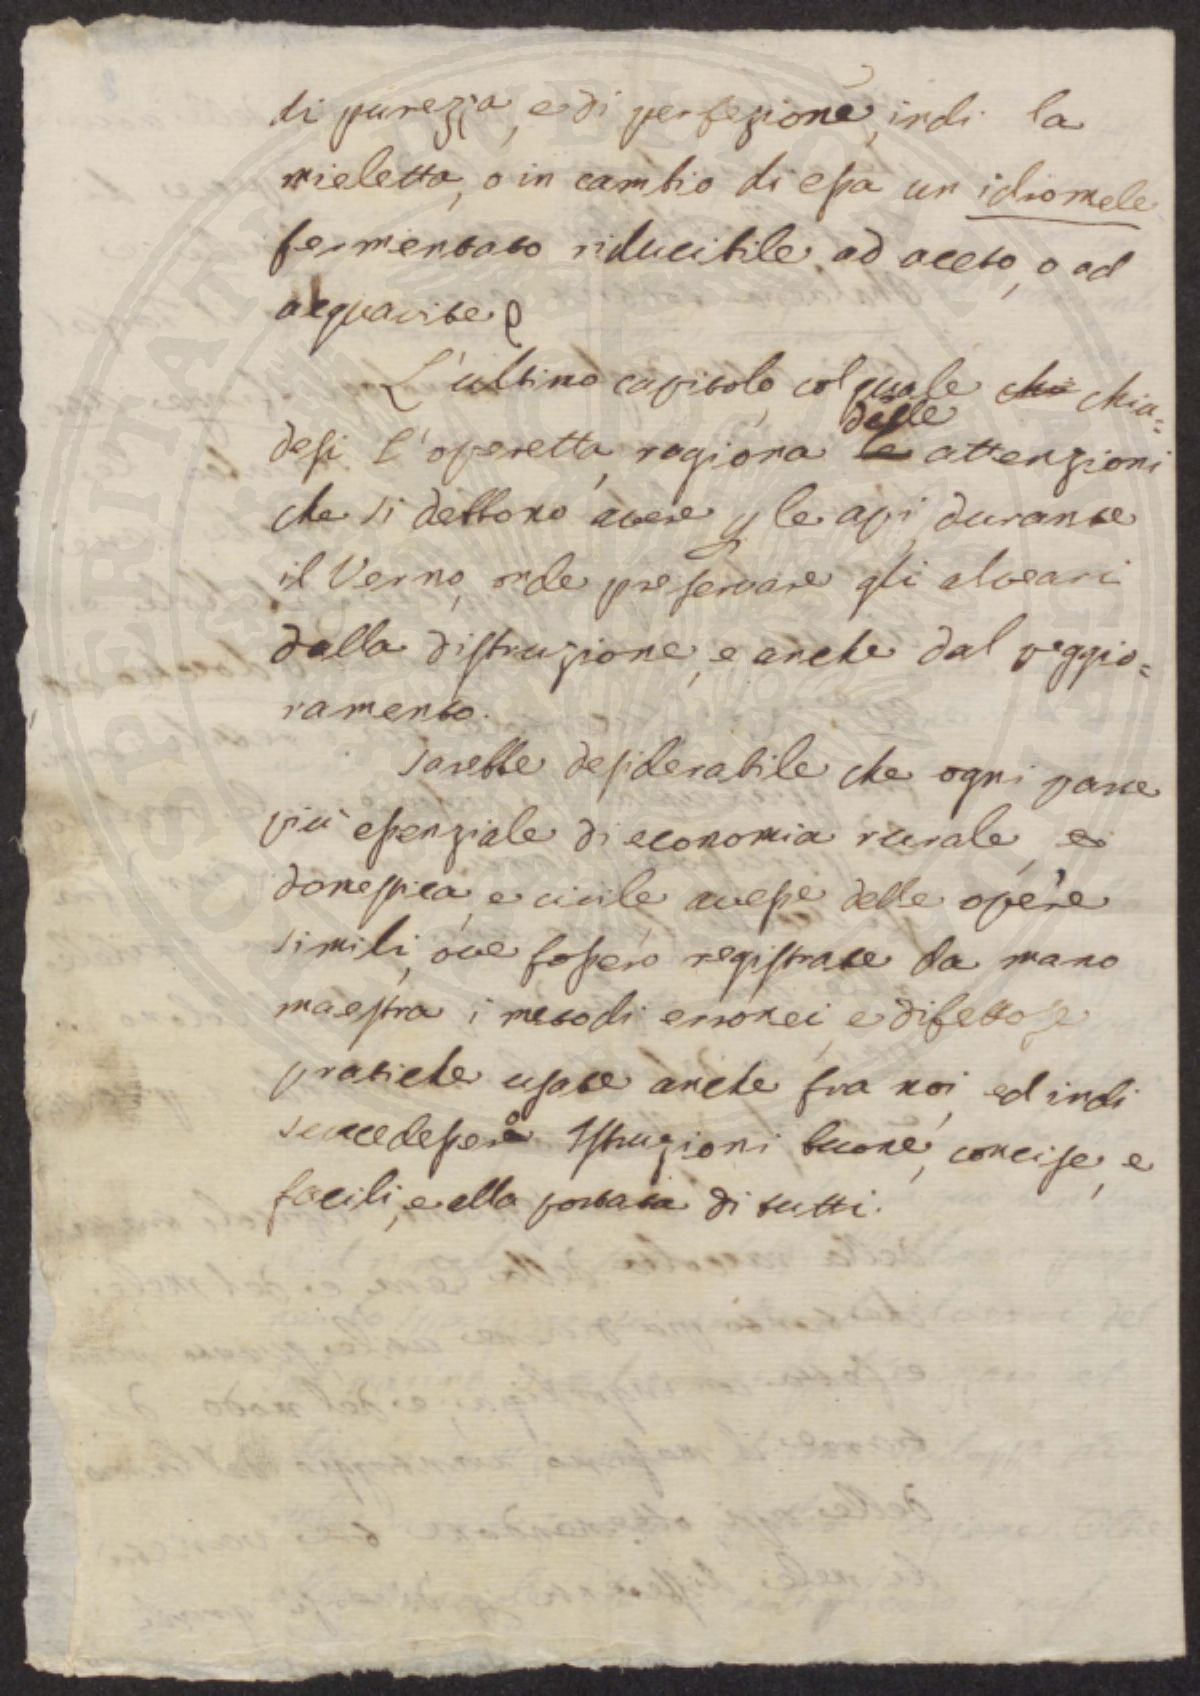 di purezza, e di perfezione, indi la
mieletta, o in cambio di essa un idromele
fermentato riducibile ad aceto, o ad
acquavite
L'ultimo capitolo, col quale chi chia=
desi l'operetta, ragiona le delle attenzioni
che si debbono avere p le api durante
il Verno, onde preservare gli alveari
dalla distruzione, e anche dal peggio=
ramento.
Sarebbe desiderabile che ogni parte
più essenziale di economia rurale, e
domestica, e civile avesse delle opere
simili, ove fossero registrate da mano
maestra i metodi erronei, e difettose
pratiche usate anche fra noi, ed indi
succedessero Istruzioni buone, concise, e
facili, e alla portata di tutti.